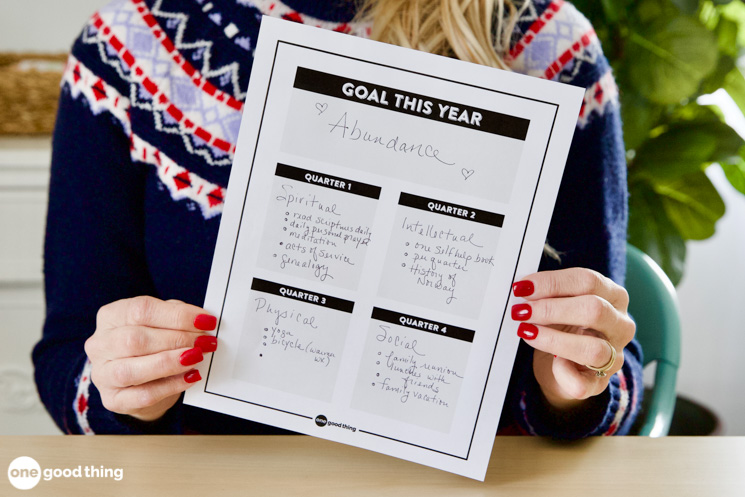 GOAL THIS YEAR
Abundance
QUARTER 1
Spiritual
read scriptures daily
daily personal prayer
meditation
acts of service
genealogy
QUARTER 2
Intellectual
one self help book
per quarter
History of
Norway
QUARTER 3
Physical
yoga
bicycle
QUARTER 4
Social
family reunion
lunches with
friends
family vacation
one good thing
one good thing